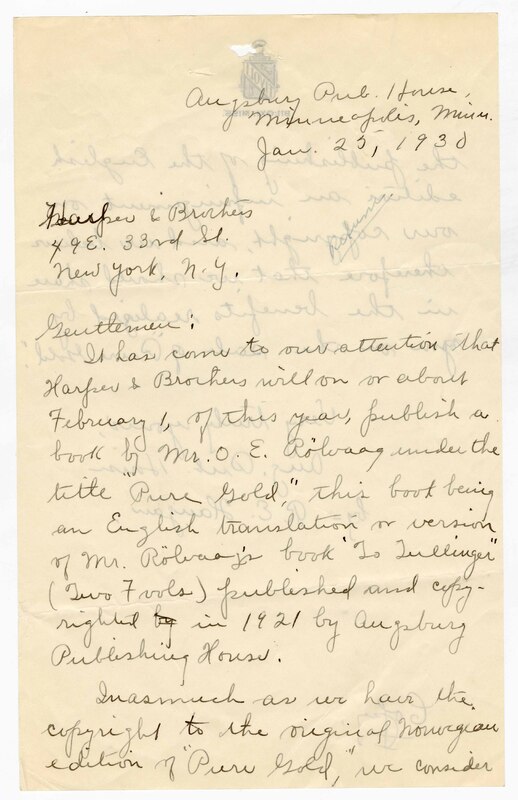 Augsburg Pub. House,
Minneapolis, Minn.
Jan. 25, 1930
Harper & Brothers
49 E. 33rd St.
New York, N.Y.
Gentlemen:
It has come to our attention that
Harper & Brothers will on or about
February 1, of this year, publish a
book by Mr. O. E. Rölvaag under the
title "Pure Gold," this book being
an English translation or version
of Mr. Rölvaag's book "To Tullinger"
(Two Fools) published and copy-
righted by in 1921 by Augsburg
Publishing House.
Inasmuch as we have the
copyright to the original Norwegian
edition of "Pure Gold," we consider